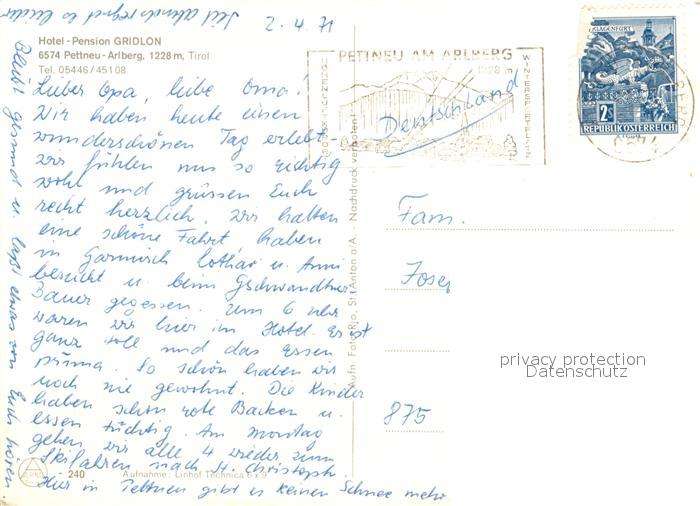 Seit abends regnet es leider
2.4.71
Hotel - Pension GRIDLON
6574 Pettneu - Arlberg, 1228 m, Tirol
Tel. 05446/45108
Lieber Opa, liebe Oma!
Wir haben heute einen
wunderschönen Tag erlebt
wir fühlen uns so richtig
wohl und grüssen Euch
recht herzlich. Wir hatten
eine schöne Fahrt, haben
in Garmisch Lothar u. Anni
besucht u. beim Gschwandtner
Bauer gegessen. Um 6 Uhr
waren wir hier im Hotel. Er ist
ganz voll und das Essen
prima. So schön haben wir
noch nie gewohnt. Die Kinder
haben schon rote Backen u.
essen tüchtig. Am Montag
gehen wir alle 4 wieder zum
Skifahren nach St. Christoph.
Hier in Pettneu gibt es keinen Schnee mehr
Bleibt gesund u. lasst etwas von Euch hören
- 240
Aufnahme: Linhof Technica 6 x 9
Aufn. Foto Rjo, St. Anton a/A. - Nachdruck verboten!
PETTNEU AM ARLBERG
1228 m
WINTERSPORTPLATZ
Deutschland
KLAGENFURT
2S
REPUBLIK ÖSTERREICH
Fam.
Josef
875
privacy protection
Datenschutz